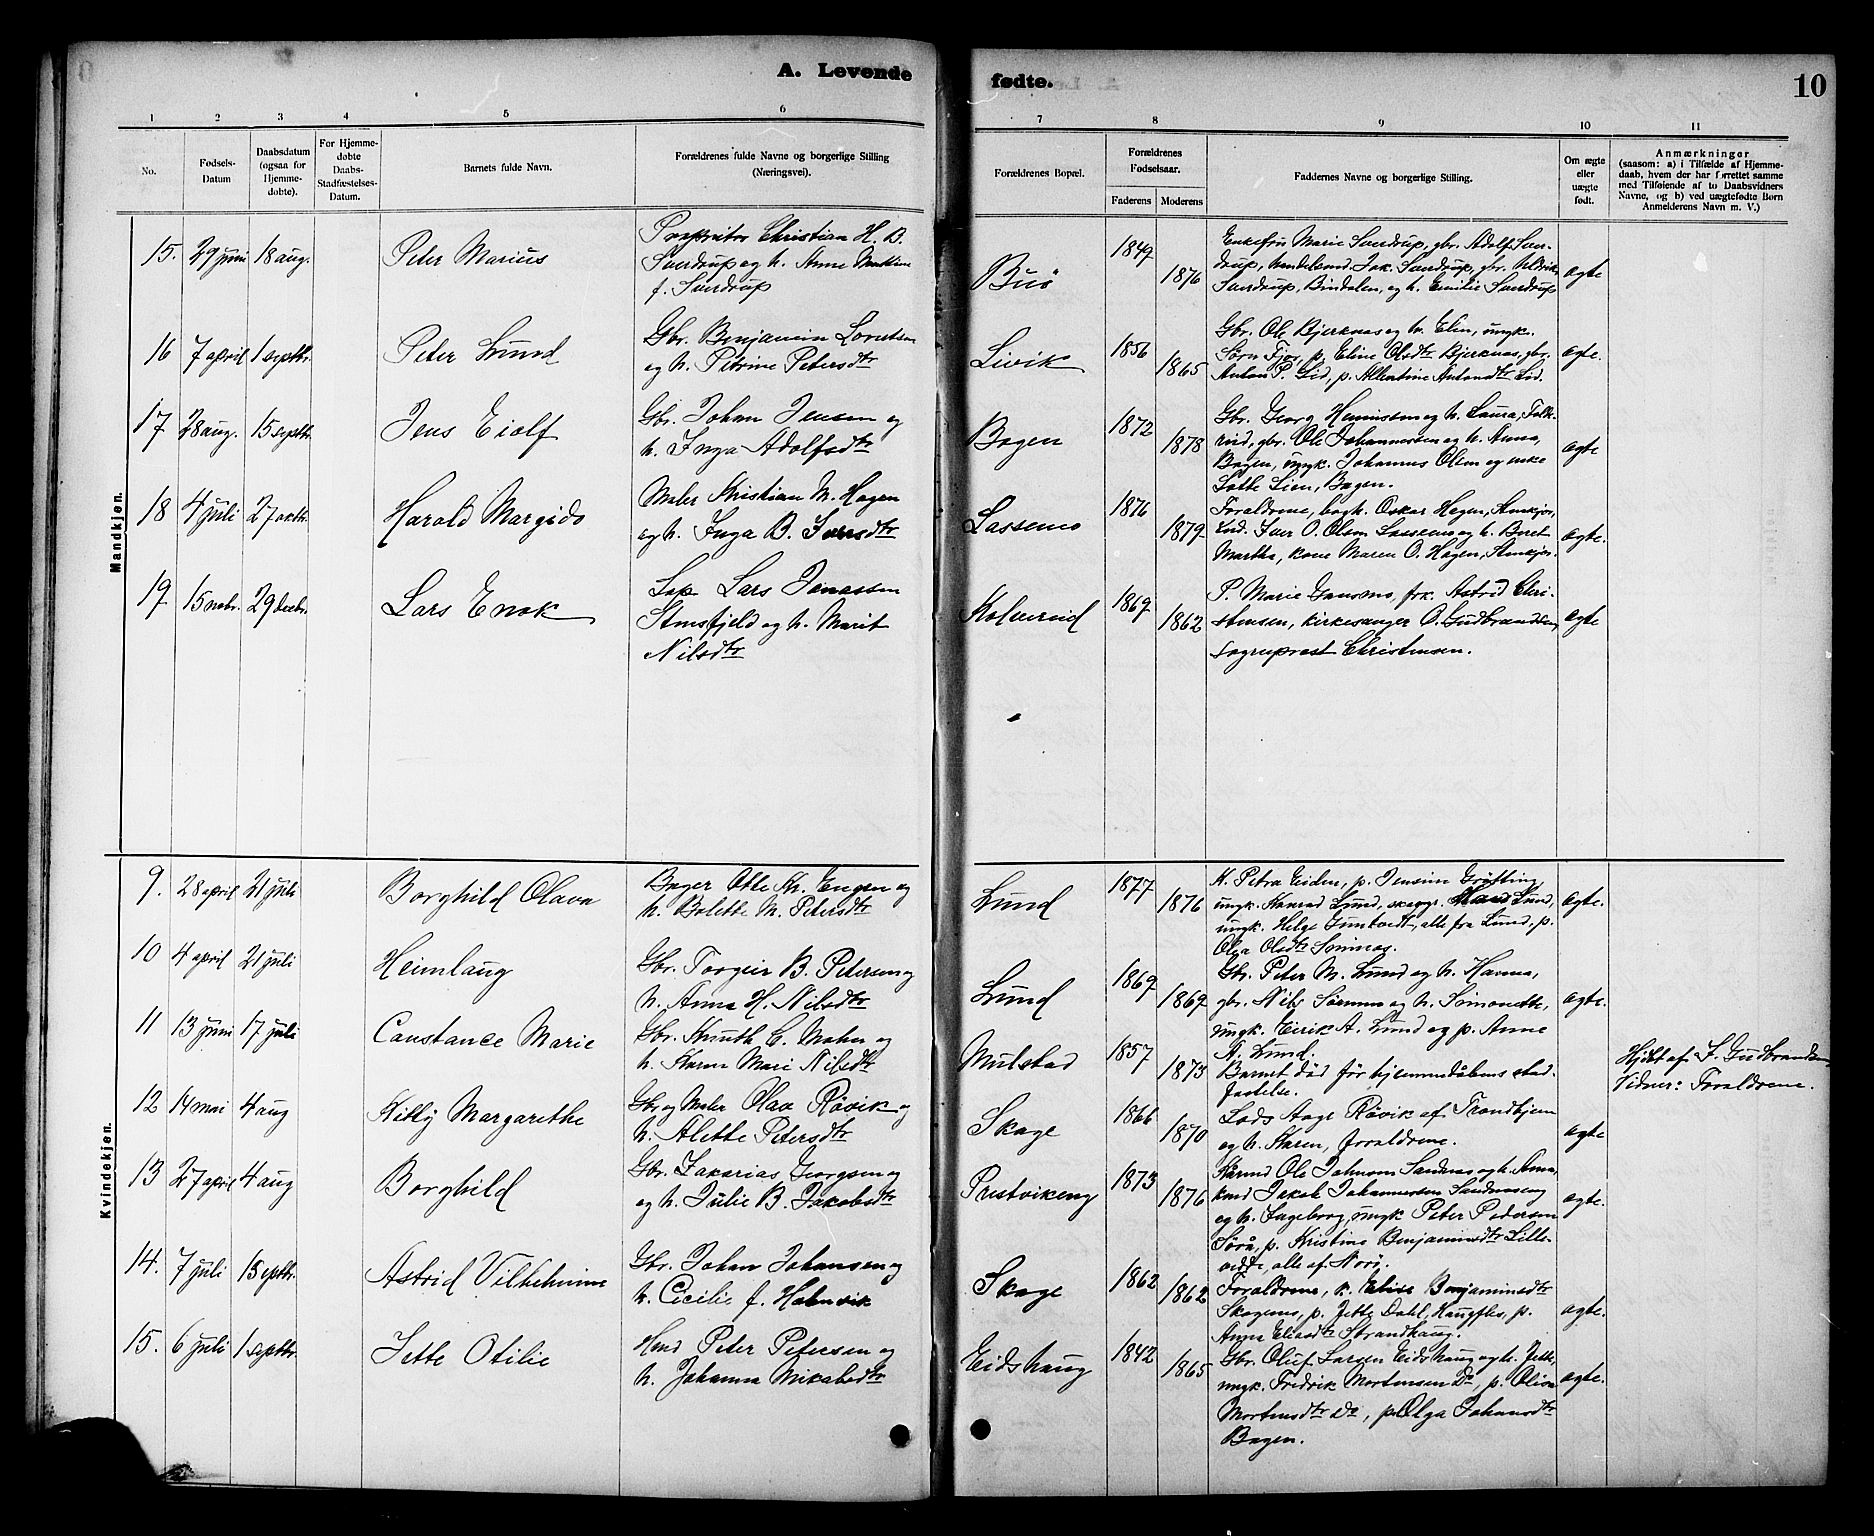 A. Levende fødte. 10
1 2 3 4 5 6 7 8 9 10 11
No.
Fødsels-
Datum
Daabsdatum
(ogsaa for
Hjemme-
døbte).
For Hjemme-
døbte
Daabs-
Stadfæstelses-
Datum.
Barnets fulde Navn.
Forældrenes fulde Navne og borgerlige Stilling
(Næringsvei).
Forældrenes Bopæl.
Forældrenes
Fødselsaar.
Faderens Moderens
Faddernes Navne og borgerlige Stilling.
Om ægte
eller
uægte
født.
Anmærkninger
(saasom: a) i Tilfælde af Hjemme-
daab, hvem der har forrettet samme
med Tilføiende af to Daabsvidners
Navne, og b) ved uægtefødte Børn
Anmelderens Navn m. V.)
Mandkjøn.
15. 29 juni 18 aug.
Peter Marius
Proprietær Christian H. B.
Sverdrup og h. Anne Martine
f. Sverdrup
Buø
1849
1876
Enkefru Marie Sverdrup, gbr. Adolf Sver-
drup, Handelsmd. Jak. Sverdrup, gbr.
Sverdrup, Bindalen, og h. Emilie Sverdrup
ægte
16 7 april 1 septbr.
Peter Lund
Gbr. Benjamin Lorntsen
og h. Petrine Petersdtr
Livik
1856
1865
Gbr. Ole Bjerknæs og h. Elen, ungk.
Sørn Fjær, p. Eline Olsdtr Bjerknæs, gbr.
Anton P. Lid, p. Albertine Antondtr Lid.
ægte.
17 28 aug. 15 septbr.
Jens Eiolf
Gbr. Johan Jensen og
h. Inga Adolfsdtr
Bogen
1872
1878
Gbr. Georg Henriksen og h. Laura, Falk-
gbr. Ole Johannessen og h. Anna,
Bogen, ungk. Johannes Olsen og enke
Lien, Bogen.
ægte
18 4 juli 27 oktbr.
Harald Margido
Maler Kristian M. Hagen
og h. Inga B. Iversdtr
Lassemo
1876
1879
Forældrene, bogh. Oskar Hagen, Stenkjær,
Iver O. Olsen Lassemo og h. Beret
Martha, kone Maren O. Hagen, Stenkjær.
ægte.
19 15 novbr. 29 decbr.
Lars Enok
Lap Lars Jonassen
Stensfjeld og h. Marit
Nilsdtr
Kolvereid
1869
1862
P. Marie Gansmo, frk. Astrid Chri-
stensen, kirkesanger O. Gudbrandsen,
sogneprest Christensen.
ægte
Kvindekjøn.
9. 28 april 21 juli
Borghild Olava
Bager Otto Kr. Engen og
h. Bolette M. Petersdtr
Lund
1877
1876
K. Petra Eiden, p. Jensine Grøtting
ungk. Konrad Lund, Lund,
ungk. Helge alle fra Lund, p.
Olga Olsdtr
ægte.
10 4 april 21 juli
Heimlaug
Gbr. Torgeir B. Petersen og
h. Anna H. Nilsdtr
Lund
1869
1869
Gbr. Peter M. Lund og h. Hanna,
gbr. Nils og h. Simonette,
ungk. Eirik A. Lund og p. Anne
A. Lund.
ægte.
11 13 juni 17 juli
Constance Marie
Gbr. Knuth C. Mohn og
h. Karen Mari Nilsdtr
Mulstad
1857
1873
Barnet død før hjemmedåbens stad-
fæstelse.
Hjdbt af. F. Gudbrandsen,
Vidner: Forældrene.
12 14 mai 4 aug
Kitty Margarethe
Gbr og Maler Olav Røvik og
h. Alette Petersdtr
Skage
1866
1870
Lods Aage Røvik af Trondhjem
og h. Karen, forældrene.
ægte
13 27 april 4 aug
Borghild
Gbr. Zakarias Georgsen og
og h. Julie B. Jakobsdtr
Prestvikeng
1873
1876
Kårmd Ole Johnsen Sandnæs og h. Anna,
Jakob Johannessen Sandnæseng
og h. Ingeborg, ungk Peter Pedersen
Sørå, p. Kristine Benjaminsdtr Lille-
alle af Nærø.
ægte.
14. 7 juli 15 septbr.
Astrid Vilhelmine
Gbr. Johan Johansen og
h. Cecilie f. Holmvik
Skage
1862
1862
Forældrene, k. Elise Benjaminsdtr
Skagemo, p. Jette Dahl, Haugfles, p.
Anna Eliasdtr Strandhaug.
ægte.
15. 6 juli 1 septbr.
Jette Otilie
Hmd Peter Petersen og
h. Johanna Mikalsdtr
Eidshaug
1842
1865
Gbr. Oluf Larsen Eidshaug og h. Jette,
ungk. Fredrik Mortensen Do, p. Olise
Mortensdtr Do, p. Olga Johansdtr
Bogen.
ægte.